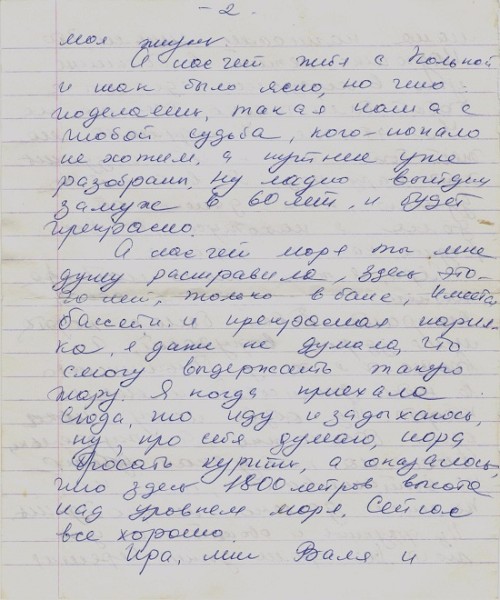 - 2.
моя жизнь
А насчет житья с Колькой
и так было ясно, но что
поделаешь, такая наша с
тобой судьба, кого-попало
не хотим, а путние уже
разобраны, ну ладно выйдем
замуж в 60 лет, и будет
прекрасно.
А насчет моря ты мне
душу растравила, здесь это-
го нет, только в бане, имеется
бассейн и прекрасная парил-
ка, я даже не думала, что
смогу выдержать такую
жару. Я когда приехала
сюда, то иду и задыхаюсь,
ну, про себя думаю, пора
бросать курить, а оказалось,
что здесь 1800 метров высота
над уровнем моря. Сейчас
все хорошо.
Ира, мы Валя и